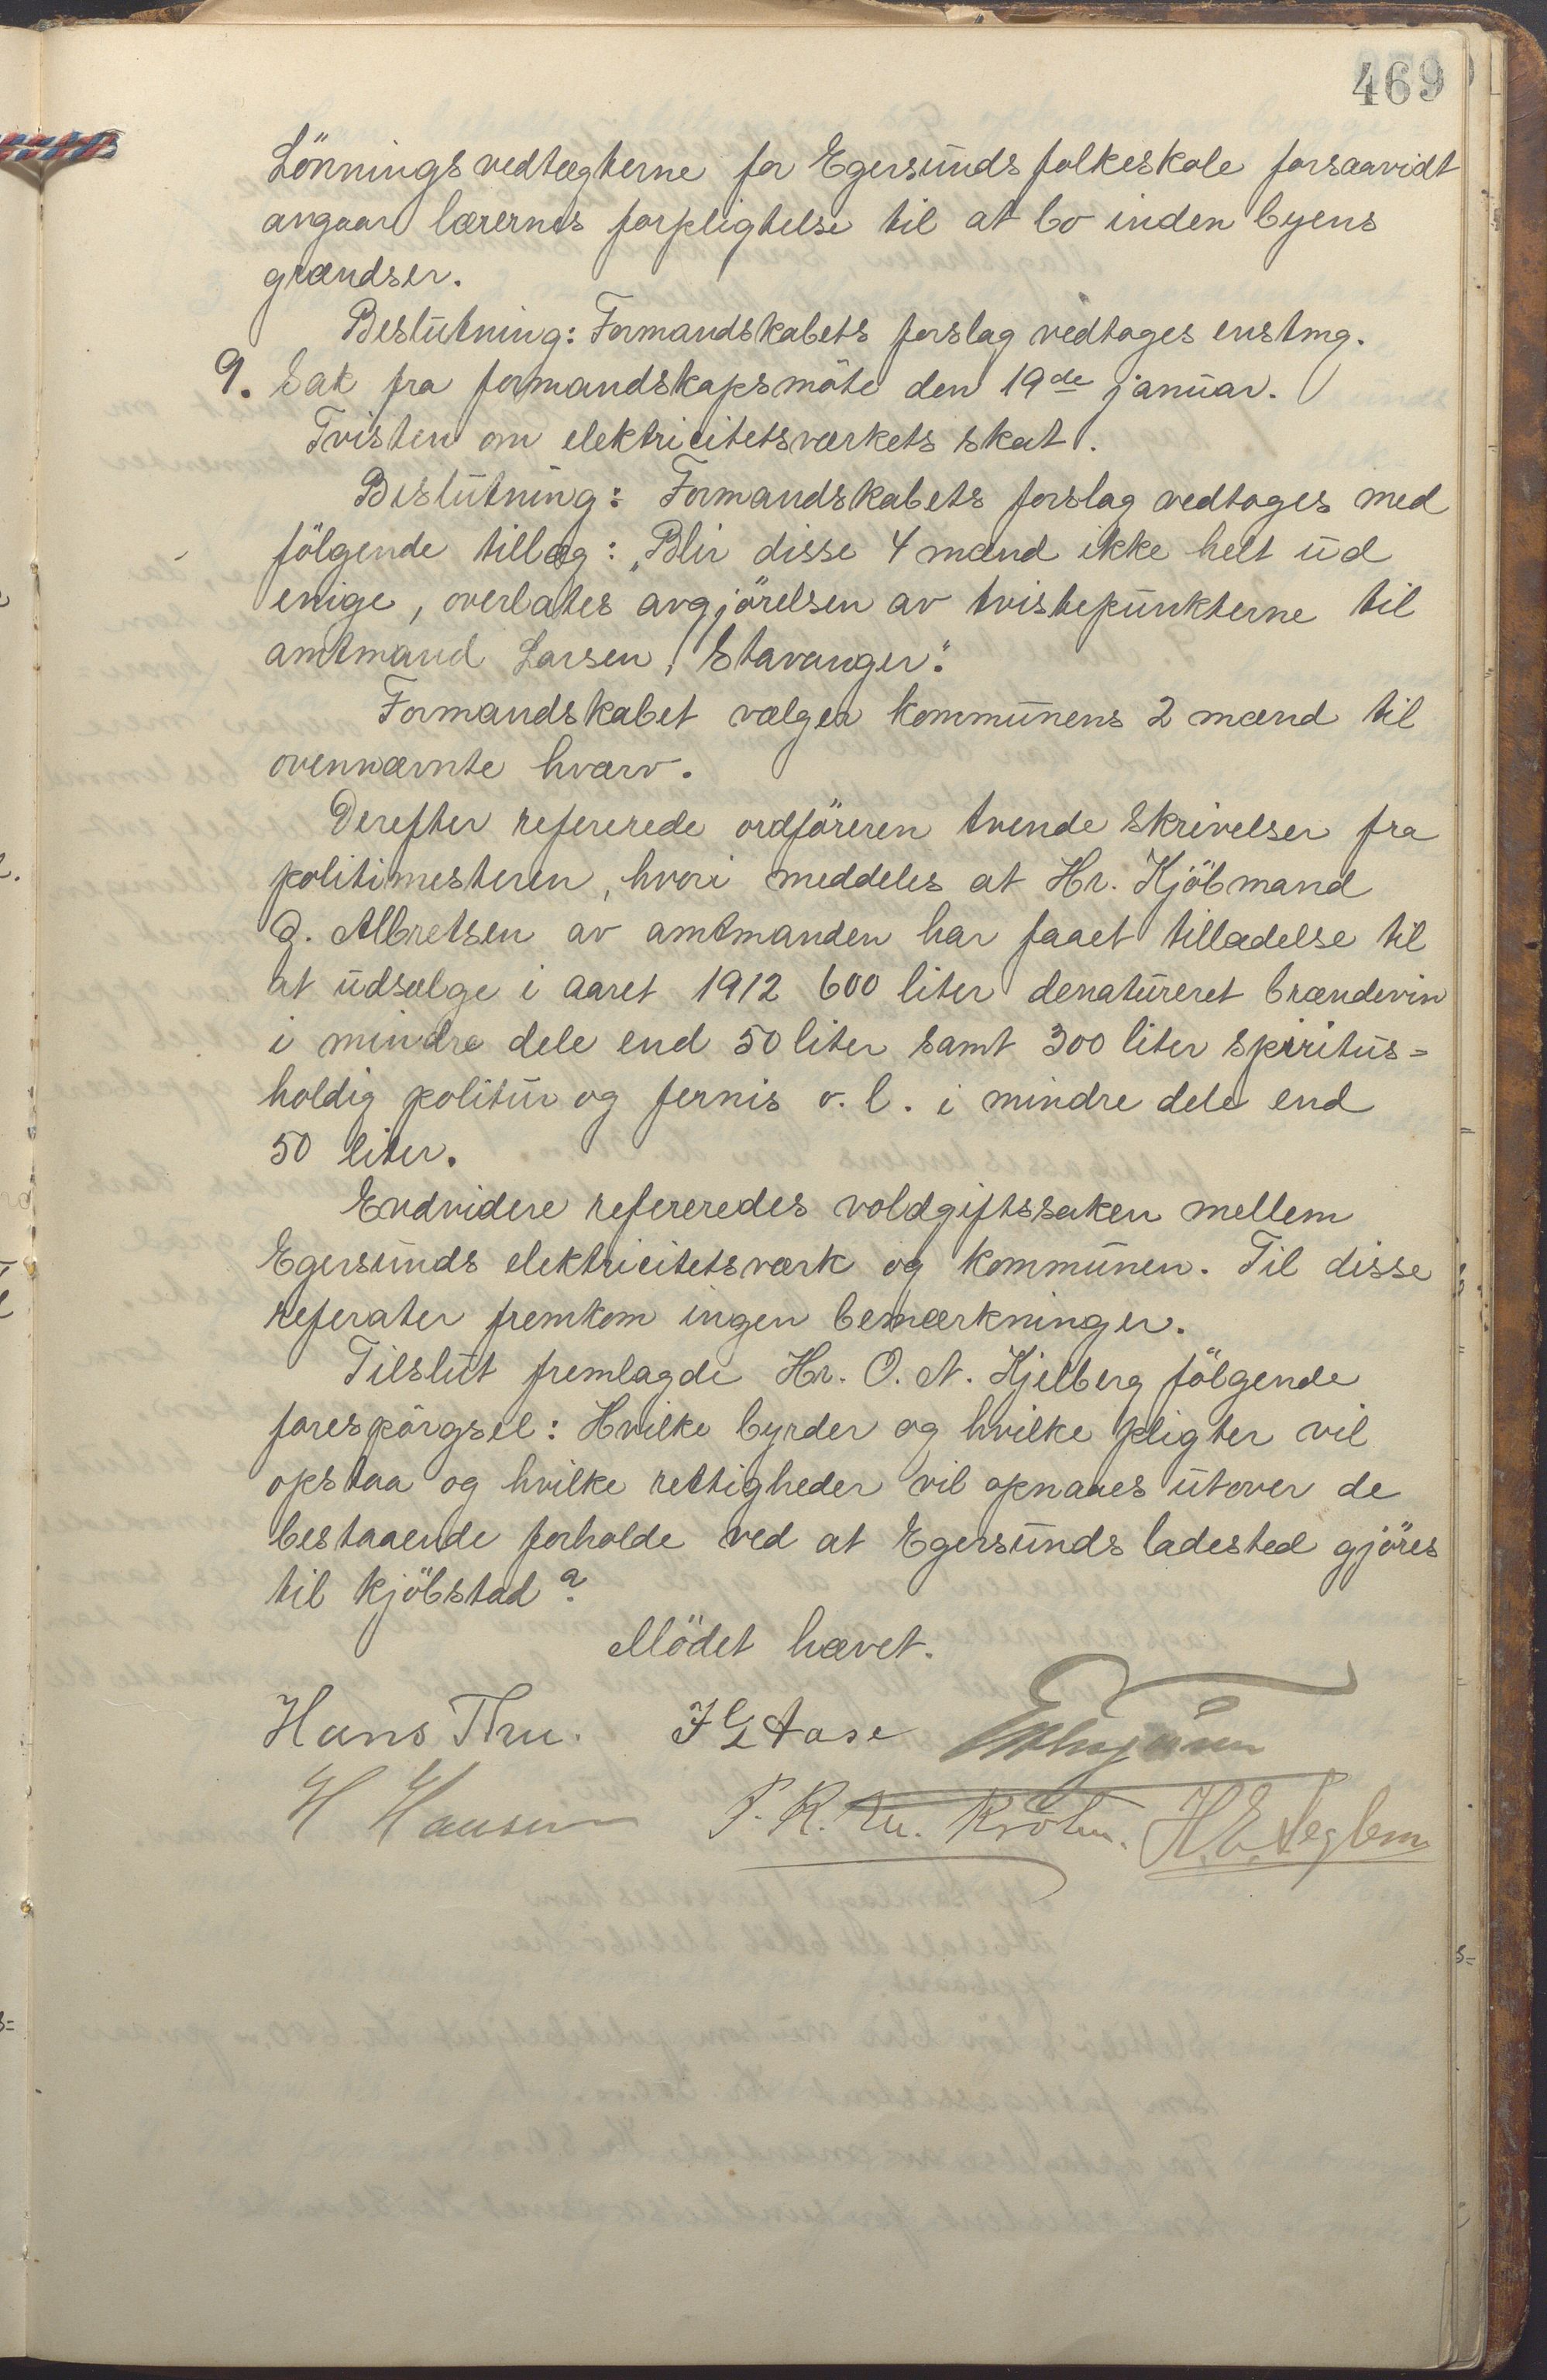 469
Lönningsvedtægterne for Egersunds folkeskole forsaavidt
angaar lærernes forpligtelse til at bo inden byens
grændser.
Beslutning: Formandskabets forslag vedtages enstmg.
9. Sak fra formandskapsmöte den 19de januar.
Tvisten om elektricitetsværkets skat.
Beslutning: Formandskabets forslag vedtages med
fölgende tillæg: „Blir disse 4 mænd ikke helt ud
enige, overlates avgjörelsen av tvistepunkterne til
amtmand Larsen, Stavanger."
Formandskabet vælger kommunens 2 mænd til
ovennævnte hværv.
Derefter refererede ordföreren tvende skrivelser fra
politimesteren, hvori meddeles at Hr. Kjöbmand
J. Albretsen av amtmanden har faaet tilladelse til
at udsælge i aaret 1912 600 liter denatureret brændevin
i mindre dele end 50 liter samt 300 liter spiritus=
holdig politur og fernis o. l. i mindre dele end
50 liter.
Endvidere refereredes voldgiftssaken mellem
Egersunds elektricitetsværk og kommunen. Til disse
referater fremkom ingen bemærkninger.
Tilslut fremlagde Hr. O. N. Kjelberg fölgende
forespörgsel: Hvilke byrder og hvilke pligter vil
opstaa og hvilke rettigheder vil opnaaes utover de
bestaaende forholde ved at Egersunds ladested gjöres
til kjöbstad?
Mödet hævet.
Hans Thu. Aase
H Hansen P. R. Kröhn. H. E. Seglem